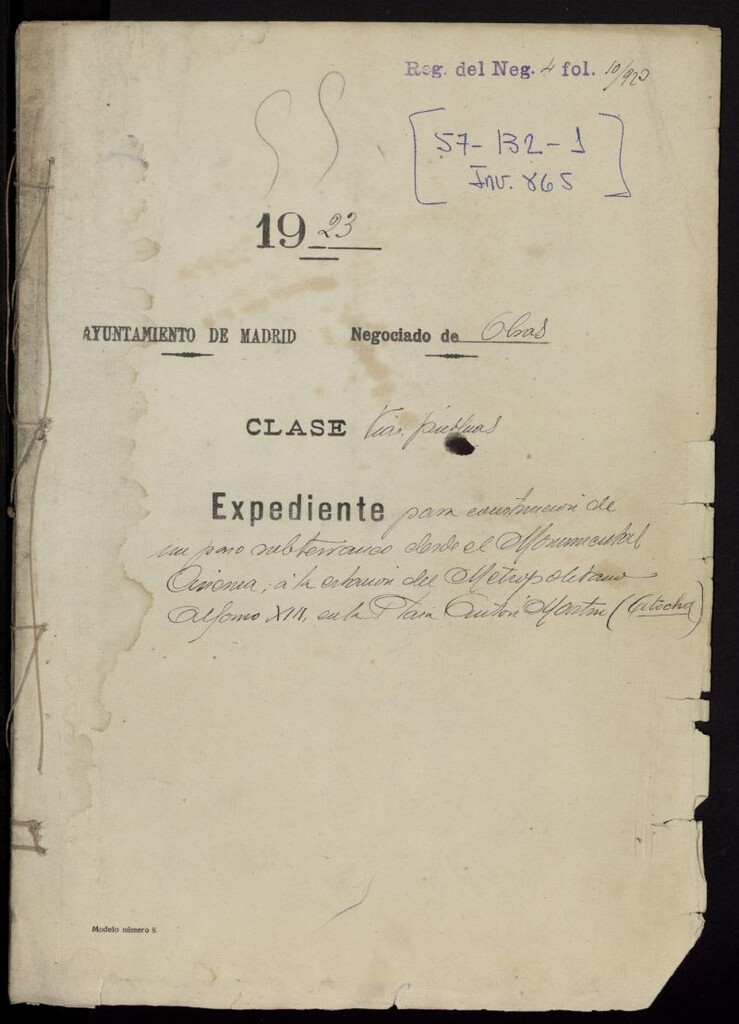 Reg. del Neg. 4 fol. 10/923
57-132-1
Inv. 865
1923
AYUNTAMIENTO DE MADRID Negociado de Obras
CLASE Vías públicas
Expediente para construcción de
un paso subterraneo desde el Monumental
Cinema, á la estación del Metropolitano
Alfonso XIII, en la Plaza Antón Martín (Atocha)
Modelo número 8